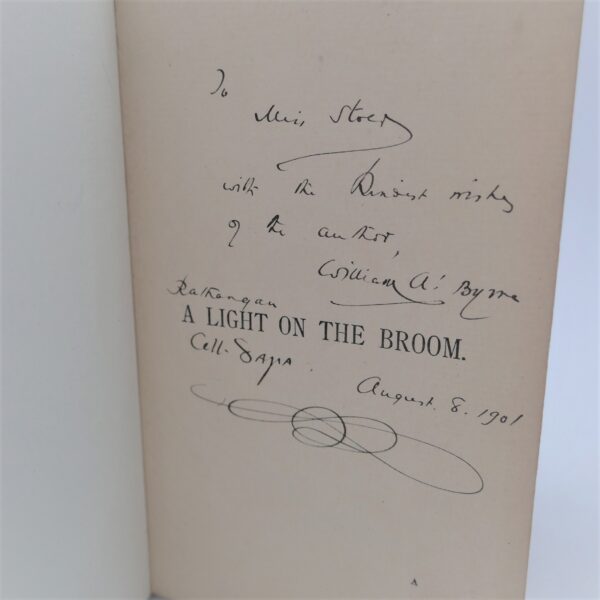 To
Miss
with the Kindest wishes
of the author,
William A. Byrne
Rathangan
A LIGHT ON THE BROOM.
August. 8. 1901
A